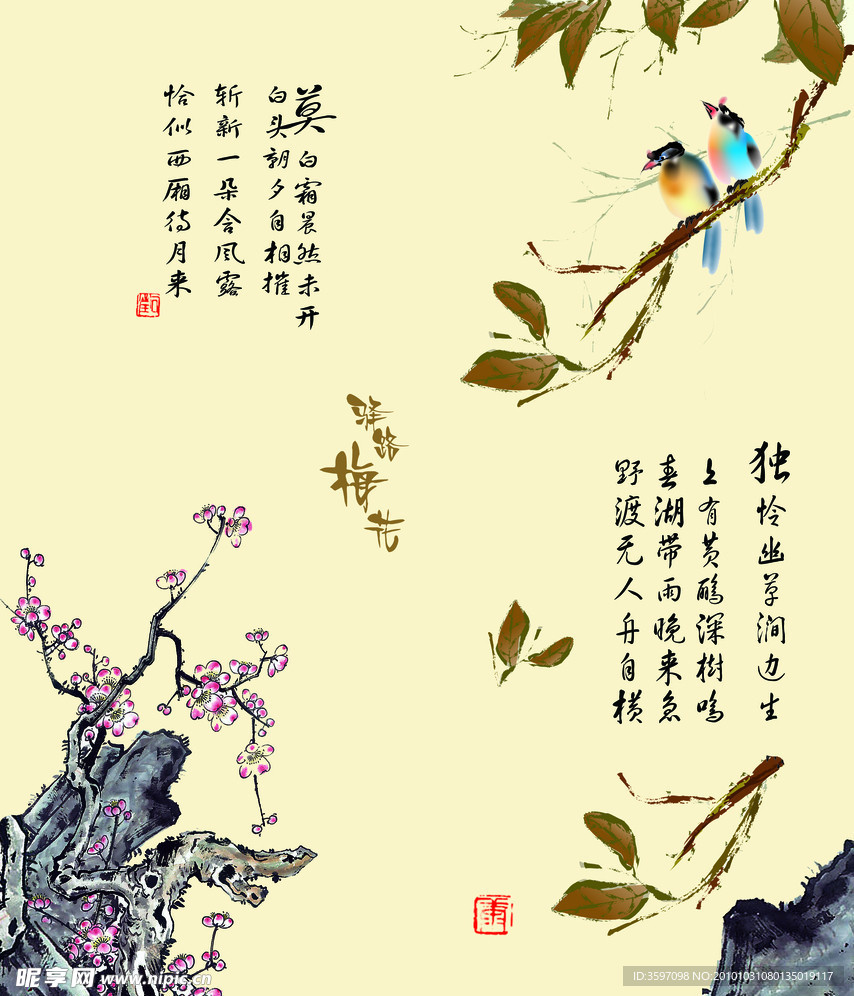 莫白霜晨然未开
白头朝夕自相摧
斩新一朵含风露
恰似西厢待月来
驿路梅花
独怜幽草涧边生
上有黄鹂深樹鸣
春湖带雨晚来急
野渡无人舟自横
昵享网 www.nipic.cn
ID:3597098 NO:20101031080135019117